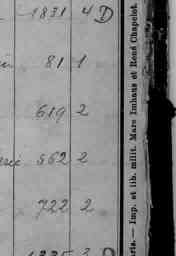 1831 4 D
81 1
619 2
562 2
722 2
ris. — Imp. et lib. milit. Marc Imhaus et René Chapelot.